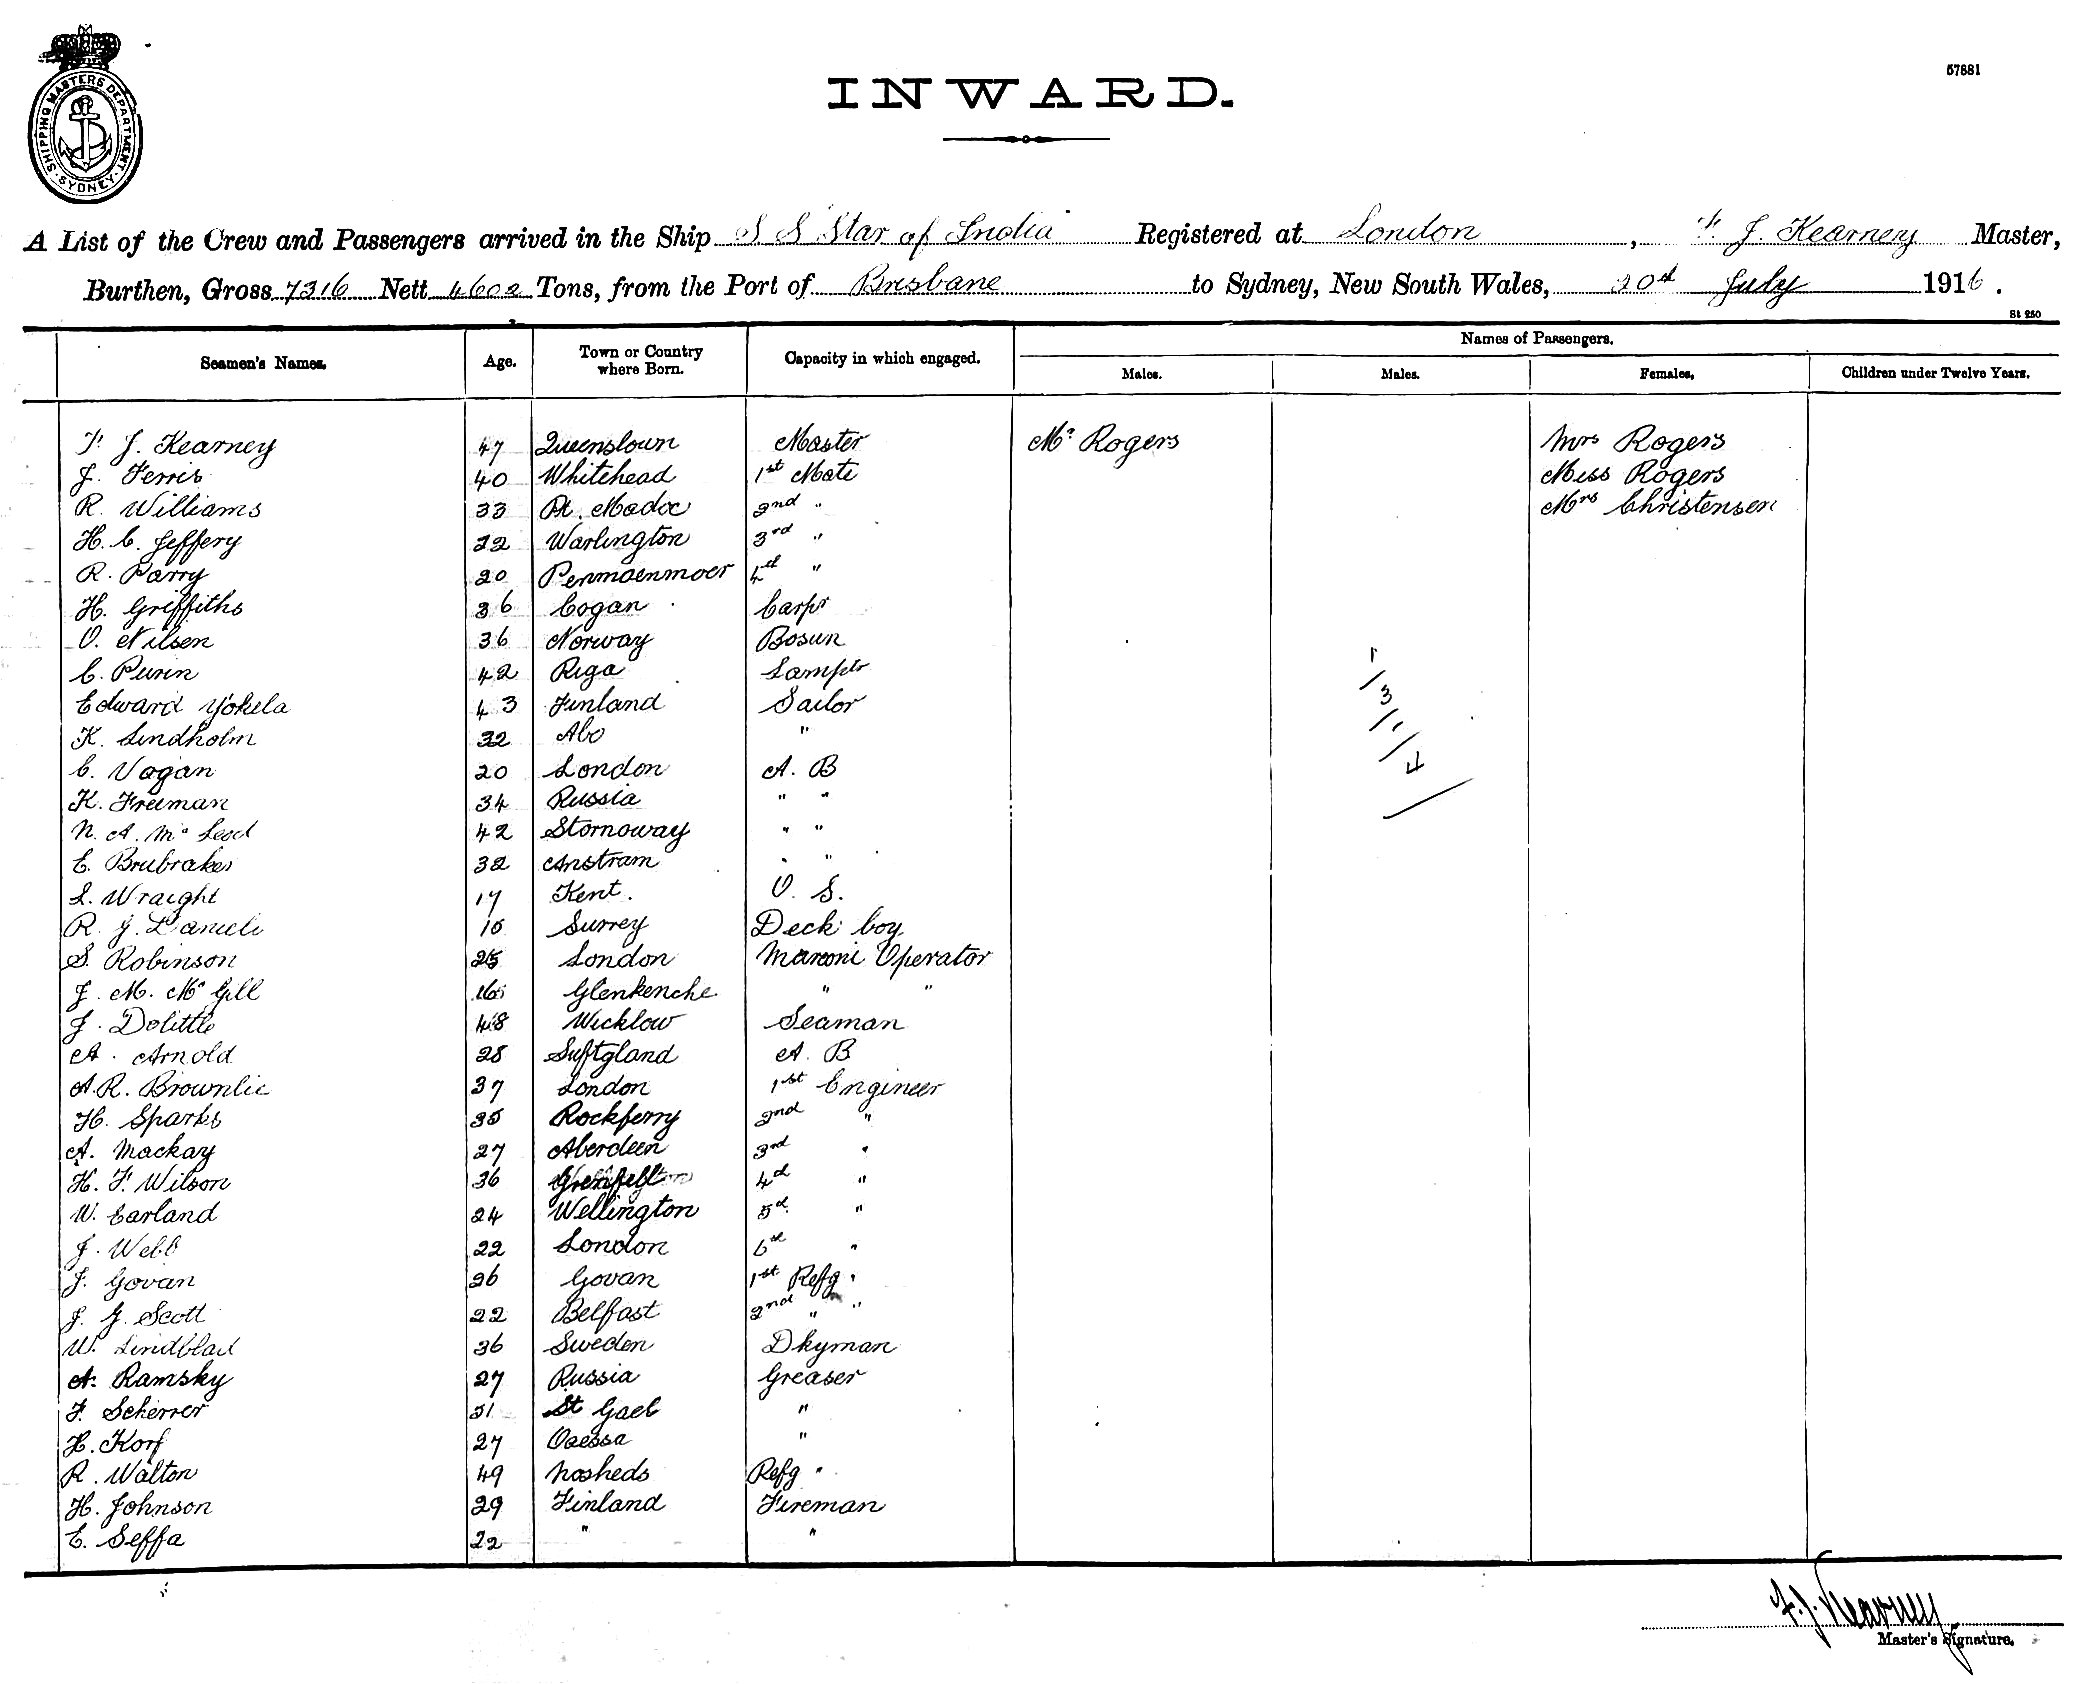 SHIPPING MASTERS DEPARTMENT. SYDNEY
57881
INWARD.
A List of the Crew and Passengers arrived in the Ship S S Star of India Registered at London, F. J. Kearney Master,
Burthen, Gross 7316 Nett 4602 Tons, from the Port of Brisbane to Sydney, New South Wales, 20th July 1916.
St 250
Seamen's Names. Age. Town or Country where Born. Capacity in which engaged. Names of Passengers.
Males. Males. Females. Children under Twelve Years.
F. J. Kearney 47 Queenstown Master Mr Rogers Mrs Rogers
J. Ferris 40 Whitehead 1st Mate Miss Rogers
R. Williams 33 Pt. Madoc 2nd " Mrs Christensen
H. C. Jeffery 22 Warlington 3rd "
R. Parry 20 Penmaenmoer 4th "
H. Griffiths 36 Cogan Carpr
O. Nilsen 36 Norway Bosun
C. Purin 42 Riga Lamptr
Edward Yokela 43 Finland Sailor
K. Lindholm 32 Abo "
C. Vagan 20 London A. B
K. Freeman 34 Russia " "
N. A. McLeod 42 Stornoway " "
E. Brubraker 32 Anstram " "
L. Wraight 17 Kent. O. S.
R. J. Daniels 16 Surrey Deck boy
S. Robinson 25 London Marconi Operator
J. M. McGill 16 Glenkenche " "
J. Dolittle 48 Wicklow Seaman
A. Arnold 28 A. B
A. R. Brownlie 37 London 1st Engineer
H. Sparks 35 Rockferry 2nd "
A. Mackay 27 Aberdeen 3rd "
H. F. Wilson 36 4th "
W. Earland 24 Wellington 5th "
J. Webb 22 London 6th "
J. Govan 26 Govan 1st Refg "
J. J. Scott 22 Belfast 2nd " "
W. Lindblad 36 Sweden Dkyman
A. Ramsky 27 Russia Greaser
F. Scherrer 31 St Gael "
H. Korf 27 Odessa "
R. Walton 49 Refg "
H. Johnson 29 Finland Fireman
E. Seffa 22 " "
1/3/1/4/
F. J. Kearney
Master's Signature.